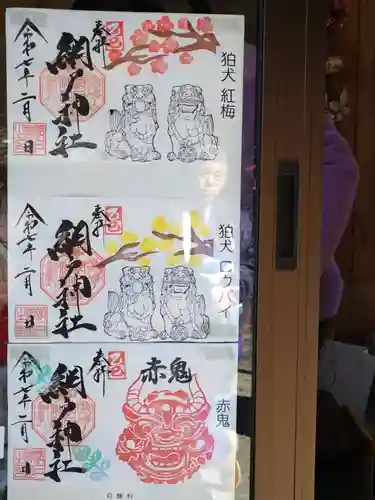 奉拝
網戸神社
令和七年二月 日
狛犬 紅梅
奉拝
網戸神社
令和七年二月 日
狛犬 ロウバイ
奉拝
網戸神社
令和七年二月 日
赤鬼
赤鬼